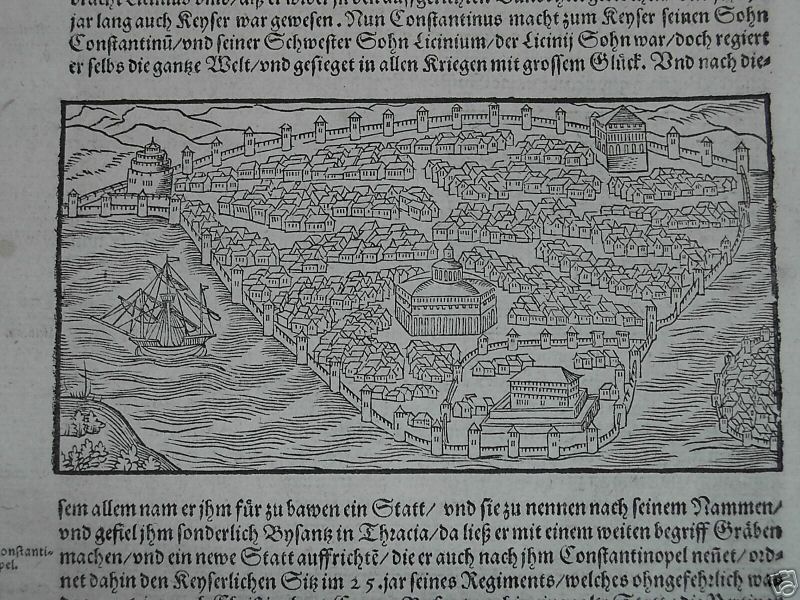 jar lang auch Keyser war gewesen. Nun Constantinus macht zum Keyser seinen Sohn
Constantinū/vnd seiner Schwester Sohn Licinium/der Licinij Sohn war/doch regiert
er selbs die gantze Welt/vnd gesieget in allen Kriegen mit grossem Glück. Vnd nach die-
sem allem nam er jhm für zu bawen ein Statt/ vnd sie zu nennen nach seinem Nammen/
vnd gefiel jhm sonderlich Bysantz in Thracia/da ließ er mit einem weiten begriff Gräben
machen/vnd ein newe Statt auffrichtē/die er auch nach jhm Constantinopel neñet/ord-
net dahin den Keyserlichen Sitz im 25.jar seines Regiments/welches ohngefehrlich was
onstanti-
pel.